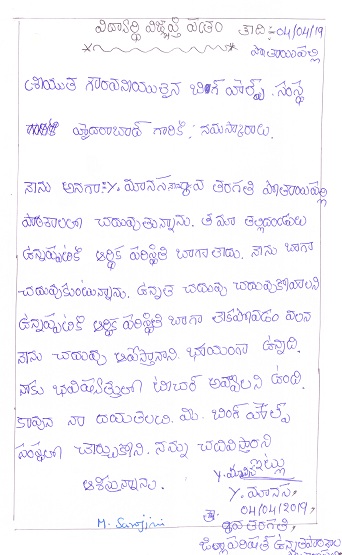 విద్యార్థి విజ్ఞప్తి పత్రం తాది:-04/04/19
పోతాయిపల్లి
శ్రీయుత గౌరవనీయులైన బింగ్ హెల్ప్ సంస్థ
హైదరాబాద్ గారికి, నమస్కారాలు.
నేను అనగా:-Y. మానస తరగతి పోతాయిపల్లి
పాఠశాలలో చదువుతున్నాను. మా తల్లిదండ్రులు
ఉన్నప్పటికీ ఆర్థిక పరిస్థితి బాగాలేదు. నేను బాగా
చదువుకుంటున్నాను. ఉన్నత చదువు చదువుకోవాలని
ఉన్నప్పటికీ ఆర్థిక పరిస్థితి బాగా లేకపోవడం వలన
నేను చదువు ఆపేస్తానని భయంగా ఉన్నది.
నాకు భవిషత్తులో టీచర్ అవ్వాలని ఉంది.
కావున నా దయతలచి మీ బింగ్ హెల్ప్
సంస్థలో చేర్చుకొని. నన్ను చదివిస్తారని
ఆశిస్తున్నాను.
ఇట్లు
Y. మానస,
04/04/2019,
తరగతి,
M. Sarojini
జిల్లాపరిషత్ ఉన్నతపాఠశాల